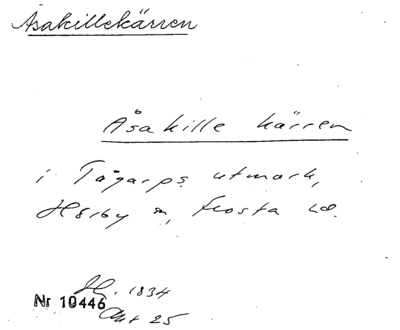 Åsakillekärren
Åsakille kärren
i Tågarps utmark,
Hörby sn, Frosta hd.
H. 1834
Nr 10446
Akt 25